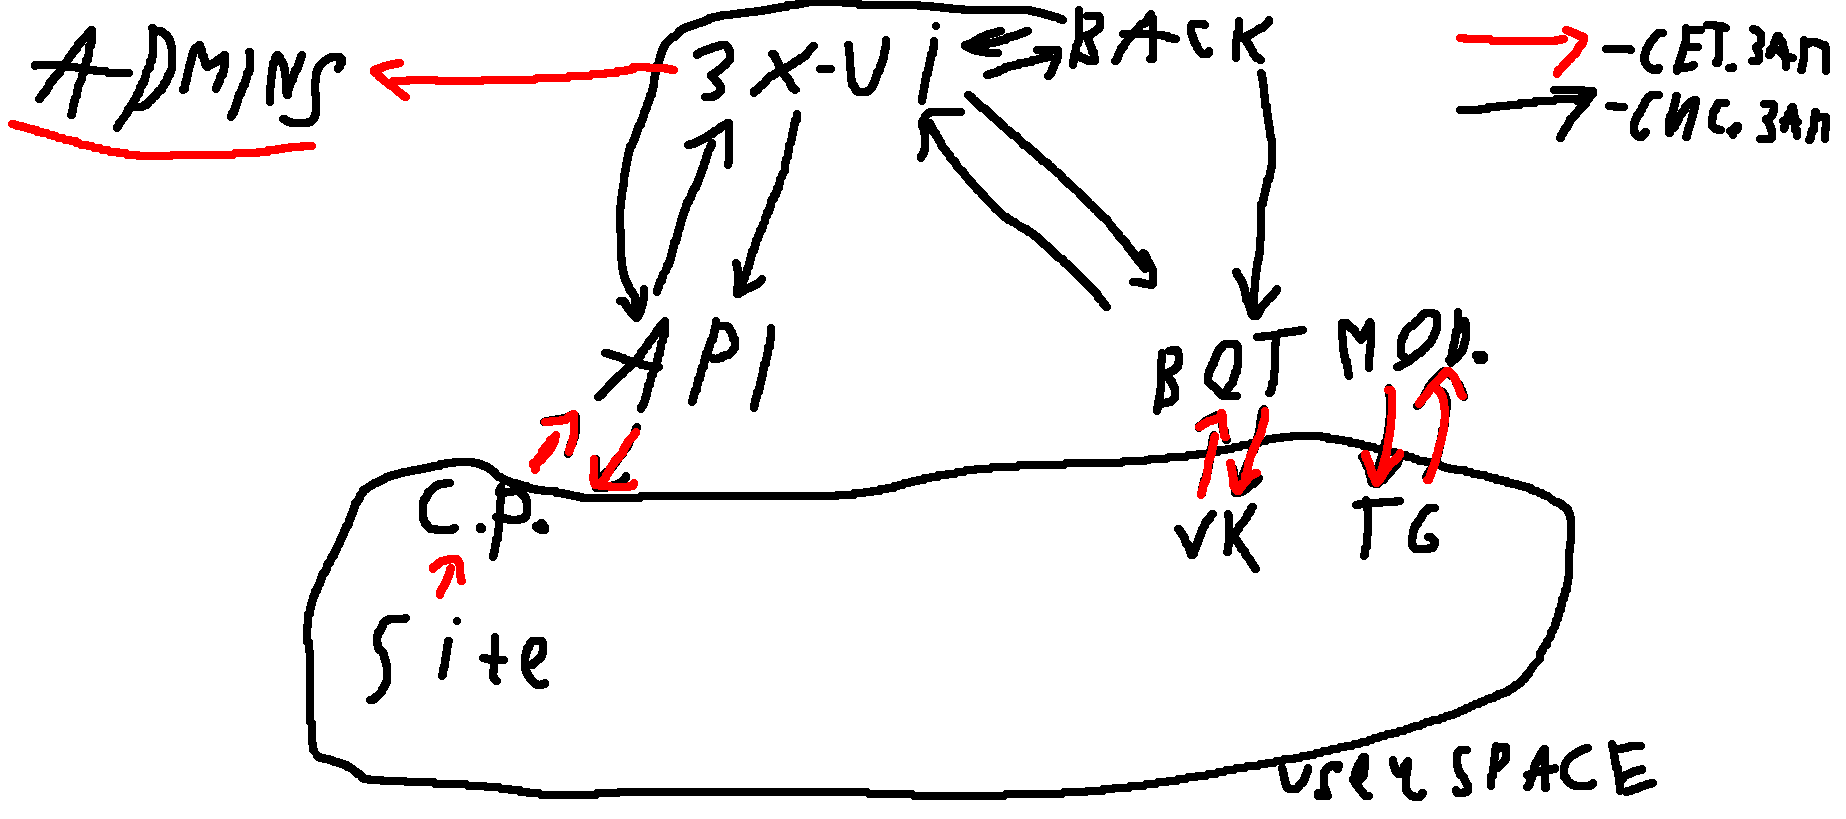 ADMINS
3X-Ui
BACK
-СЕТ. ЗАП
-СИС. ЗАП
API
BOT MOD.
C.P.
VK
TG
Site
user SPACE